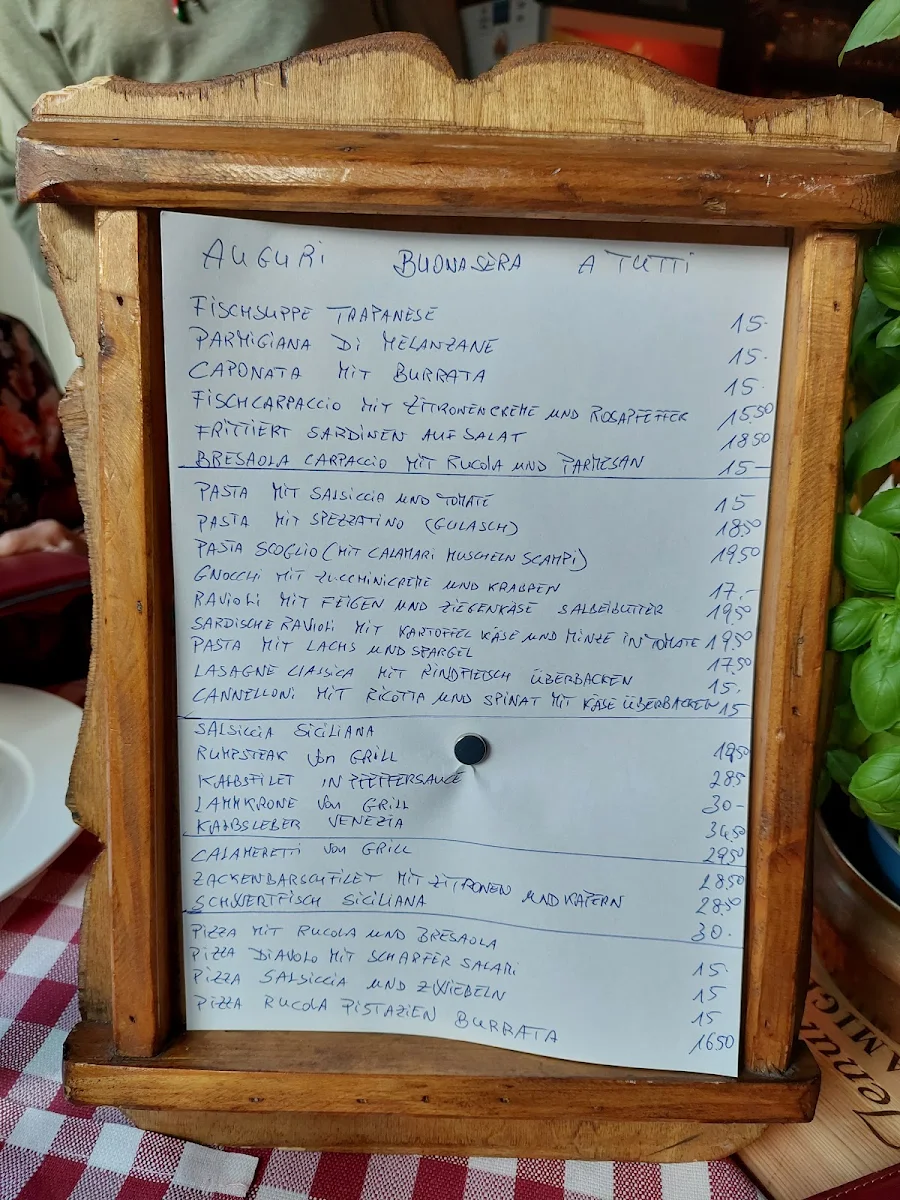 AUGURI BUONASERA A TUTTI
FISCHSUPPE TRAPANESE 15.
PARMIGIANA Di MELANZANE 15.
CAPONATA MIT BURRATA 15.
FISCHCARPACCIO MIT ZITRONENCREME UND ROSAPFEFFER 15.50
FRITTIERT SARDINEN AUF SALAT 18.50
BRESAOLA CARPACCIO MIT RUCOLA UND PARMESAN 15-
PASTA MIT SALSICCIA UND TOMATE 15
PASTA MIT SPEZZATINO (GULASCH) 18.50
PASTA SCOGLIO (MIT CALAMARI MUSCHELN SCAMPI) 19.50
GNOCCHI MIT ZUCCHINICREME UND KRABBEN 17.-
RAVIOLI MIT FEIGEN UND ZIEGENKÄSE SALBEIBUTTER 19.50
SARDISCHE RAVIOLI MIT KARTOFFEL KÄSE UND MINZE IN TOMATE 19.50
PASTA MIT LACHS UND SPARGEL 17.50
LASAGNE CLASSICA MIT RINDFLEISCH ÜBERBACKEN 15.
CANNELLONI MIT RICOTTA UND SPINAT MIT KÄSE ÜBERBACKEN 15
SALSICCIA SICILIANA 19.50
RUMPSTEAK VON GRILL 28.5
KALBSFILET IN PFEFFERSAUCE 30-
LAMMKRONE VON GRILL 34.50
KALBSLEBER VENEZIA 29.50
CALAMERETTI VON GRILL 28.50
ZACKENBARSCHFILET MIT ZITRONEN UND KAPERN 28.50
SCHWERTFISCH SICILIANA 30.
PIZZA MIT RUCOLA UND BRESAOLA 15.
PIZZA DIAVOLO MIT SCHARFER SALAMI 15
PIZZA SALSICCIA UND ZWIEBELN 15
PIZZA RUCOLA PISTAZIEN BURRATA 16.50